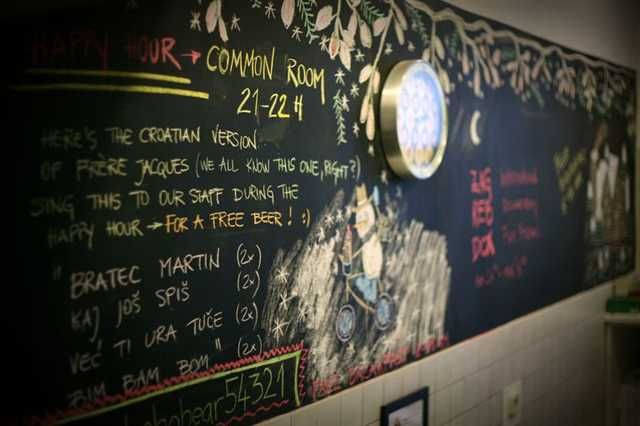 HAPPY HOUR → COMMON ROOM
21-22 H
HERE'S THE CROATIAN VERSION
OF FRÈRE JACQUES (WE ALL KNOW THIS ONE, RIGHT?)
SING THIS TO OUR STAFF DURING THE
HAPPY HOUR → FOR A FREE BEER! :)
"BRATEC MARTIN (2x)
KAJ JOŠ SPIŠ (2x)
VEĆ TI URA TUČE (2x)
BIM BAM BOM" (2x)
bear54321